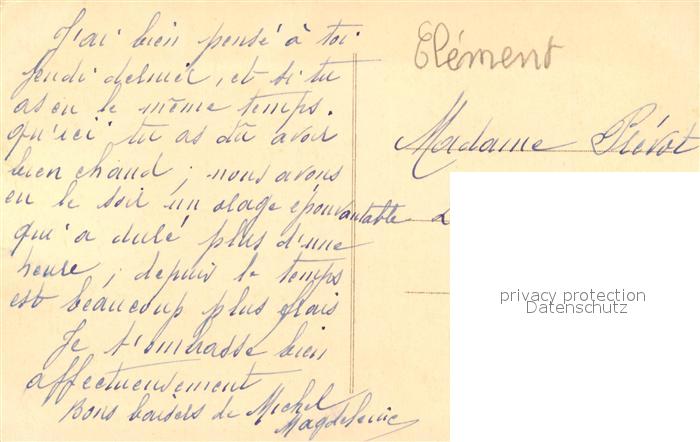 J'ai bien pensé à toi
jeudi dernier, et si tu
as eu le même temps
qu'ici tu as dû avoir
bien chaud ; nous avons
eu le soir un orage épouvantable
qui a duré plus d'une
heure ; depuis le temps
est beaucoup plus frais
Je t'embrasse bien
affectueusement
Bons baisers de Michel
Magdeleine
Clément
Madame Prévot
privacy protection
Datenschutz